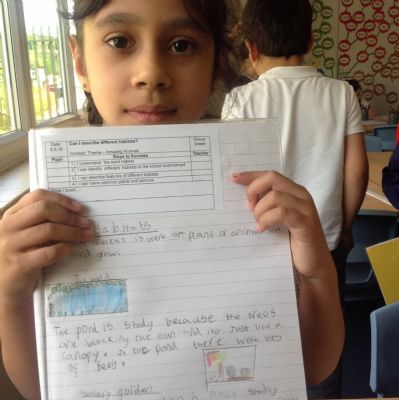 Date: Can I describe different habitats? Group:
9.5.16 Green
Context: Theme – Amazing Animals
Pupil Steps to Success Teacher
1 I understand the word habitat
2 I can identify different habitats in the school environment
3 I can describe features of different habitats
4 I can name common plants and animals
Habitats
is were a plant or animal
and grow.
pond
The pond is shady because the trees
are blocking the sun and its just like a
canopy. in the pond there were lots
of
sensory garden
shady